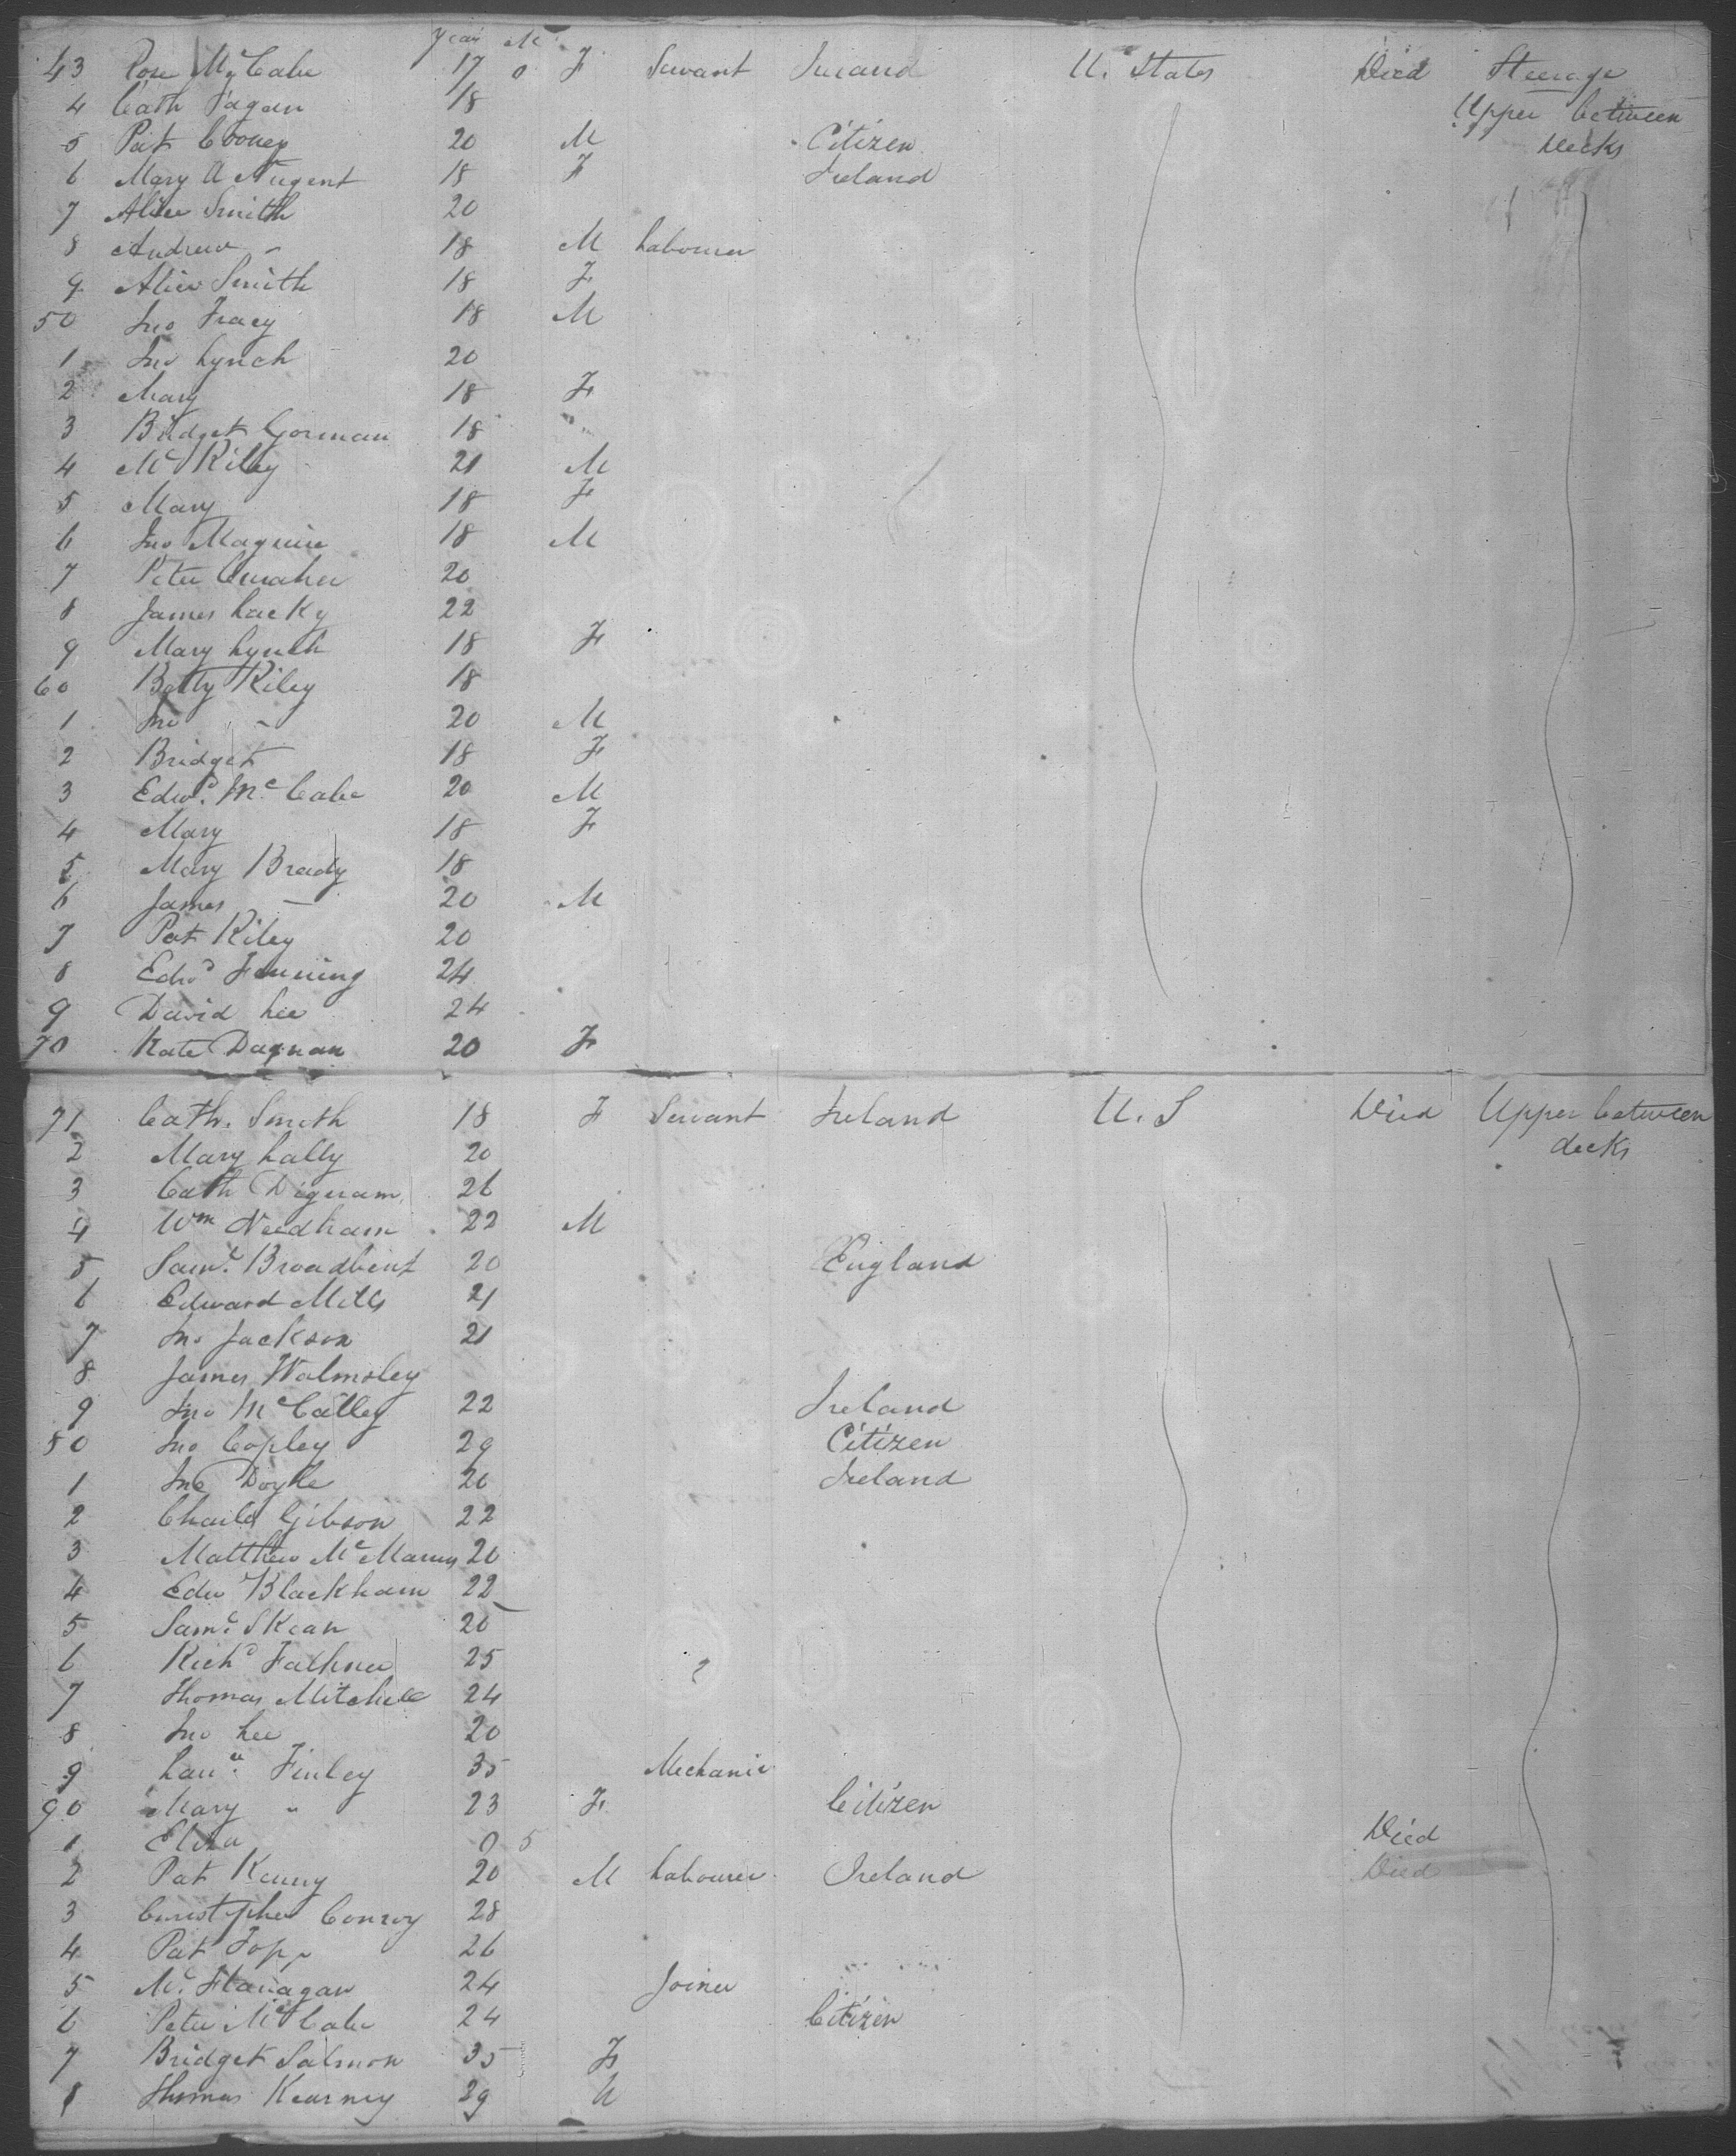 Year M
43 Rose McCabe 17 0 F Servant Ireland U. States Died Steerage
4 Cath Fagan 18 Upper between
5 Pat Cooney 20 M Citizen Decks
6 Mary A Nugent 18 F Ireland
7 Alice Smith 20
8 Andrew " 18 M Labourer
9 Alice Smith 18 F
50 Jno Tracy 18 M
1 Jno Lynch 20
2 Mary 18 F
3 Bridget Gorman 18 "
4 Mc Riley 21 M
5 Mary 18 F
6 Jno Maguire 18 M
7 Peter 20
8 James Lacky 22
9 Mary Lynch 18 F
60 Betty Riley 18
1 Jno " 20 M
2 Bridget 18 F
3 Edwd. McCabe 20 M
4 Mary 18 F
5 Mary Brady 18
6 James — 20 M
7 Pat Riley 20
8 Edwd 24
9 David Lee 24
70 Kate Dagnan 20 F
71 Cath. Smith 18 F Servant Ireland U. S Died Upper between
2 Mary Lally 20 decks
3 Cath Dignam 26
4 Wm Needham 22 M
5 Saml. Broadbent 20 England
6 Edward Mills 21
7 Jno Jackson 21
8 James Walmsley
9 Jno McCalley 22 Ireland
80 Jno Copley 29 Citizen
1 Jno Doyle 20 Ireland
2 Charles Gibson 22
3 Matthew McManus 20
4 Edw Blackham 22
5 Saml. Skean 20
6 Richd Falkner 25
7 Thomas Mitchell 24
8 Jno Lee 20
9 Finley 35 Mechanic
90 Mary " 23 F Citizen
1 Eliza 0 5 Died
2 Pat Kenny 20 M Labourer Ireland Died
3 Christopher Conroy 28
4 Pat 26
5 Mc. Flanagan 24 Joiner
6 Peter McCabe 24 Citizen
7 Bridget Salmon 35 F
8 Thomas Kearney 29 M